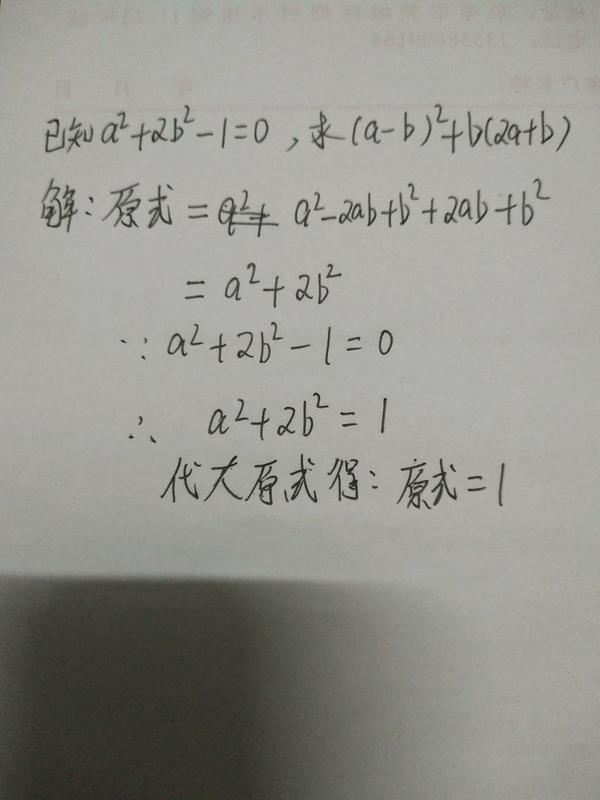 已知a²+2b²-1=0,求(a-b)²+b(2a+b)
解:原式=a²-2ab+b²+2ab+b²
=a²+2b²
∵a²+2b²-1=0
∴ a²+2b²=1
代大原式得:原式=1